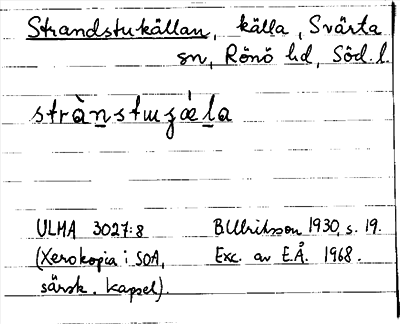 Strandstukällan, källa, Svärta
sn, Rönö hd, Söd. l.
strànstuʒǽla
ULMA 3027:8 B Ulriksson 1930, s. 19.
(Xerokopia i SOA, Exc. av E.Å. 1968.
särsk. kapsel).